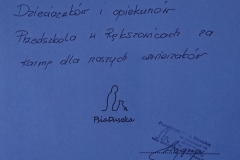 Dzieciaczków i opiekunów
Przedszkola w Rębszowicach za
karmę dla naszych zwierzaków
BiaDuszka